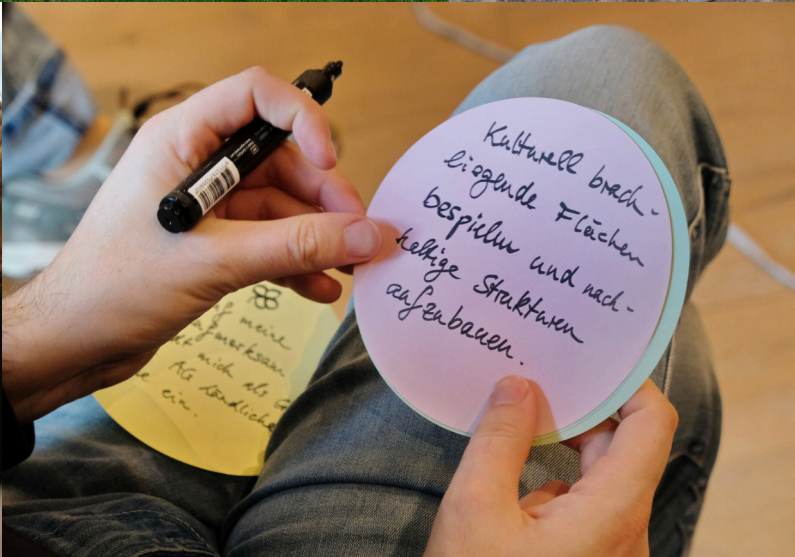 Kulturell brach-
liegende Flächen
bespielen und nach-
haltige Strukturen
aufzubauen.
meine
mich als
AG ländliche
ein.